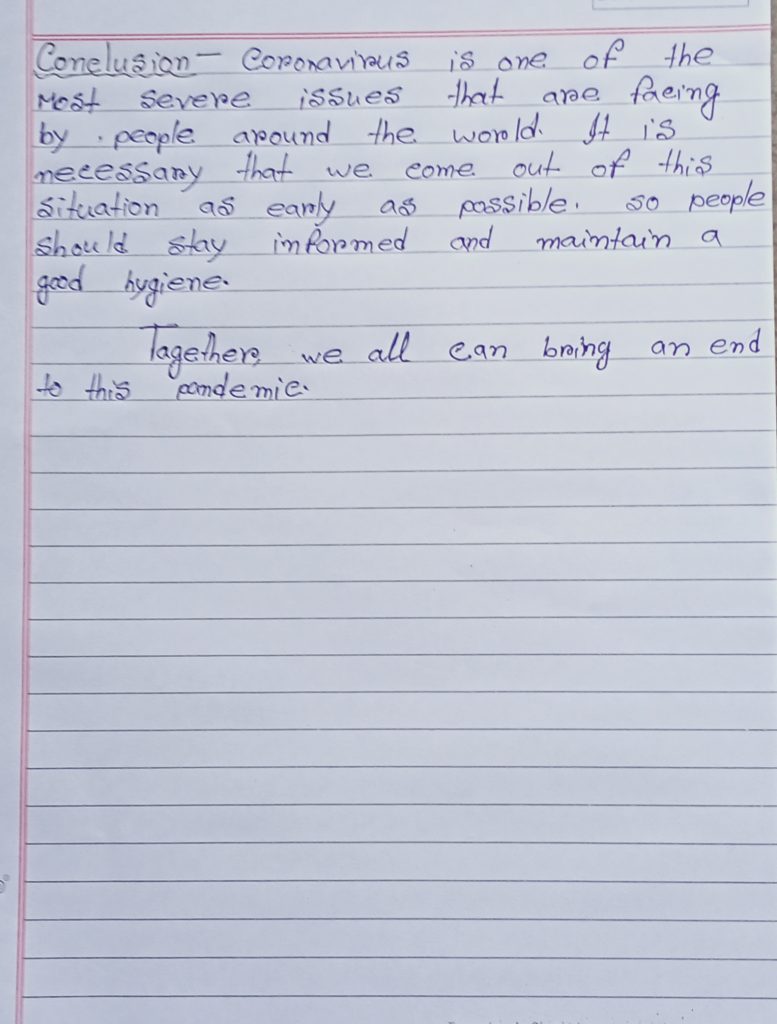 Conclusion - Coronavirus is one of the
most severe issues that are facing
by people around the world. It is
necessary that we come out of this
situation as early as possible. so people
should stay informed and maintain a
good hygiene.
Together, we all can bring an end
to this pandemic.